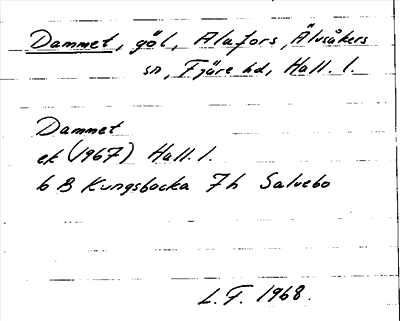 Dammet, göl, Alafors, Älvsåkers
sn, Fjäre hd, Hall. l.
Dammet
ek (1967) Hall. l.
6 B Kungsbacka 7h Salvebo
L. F. 1968.